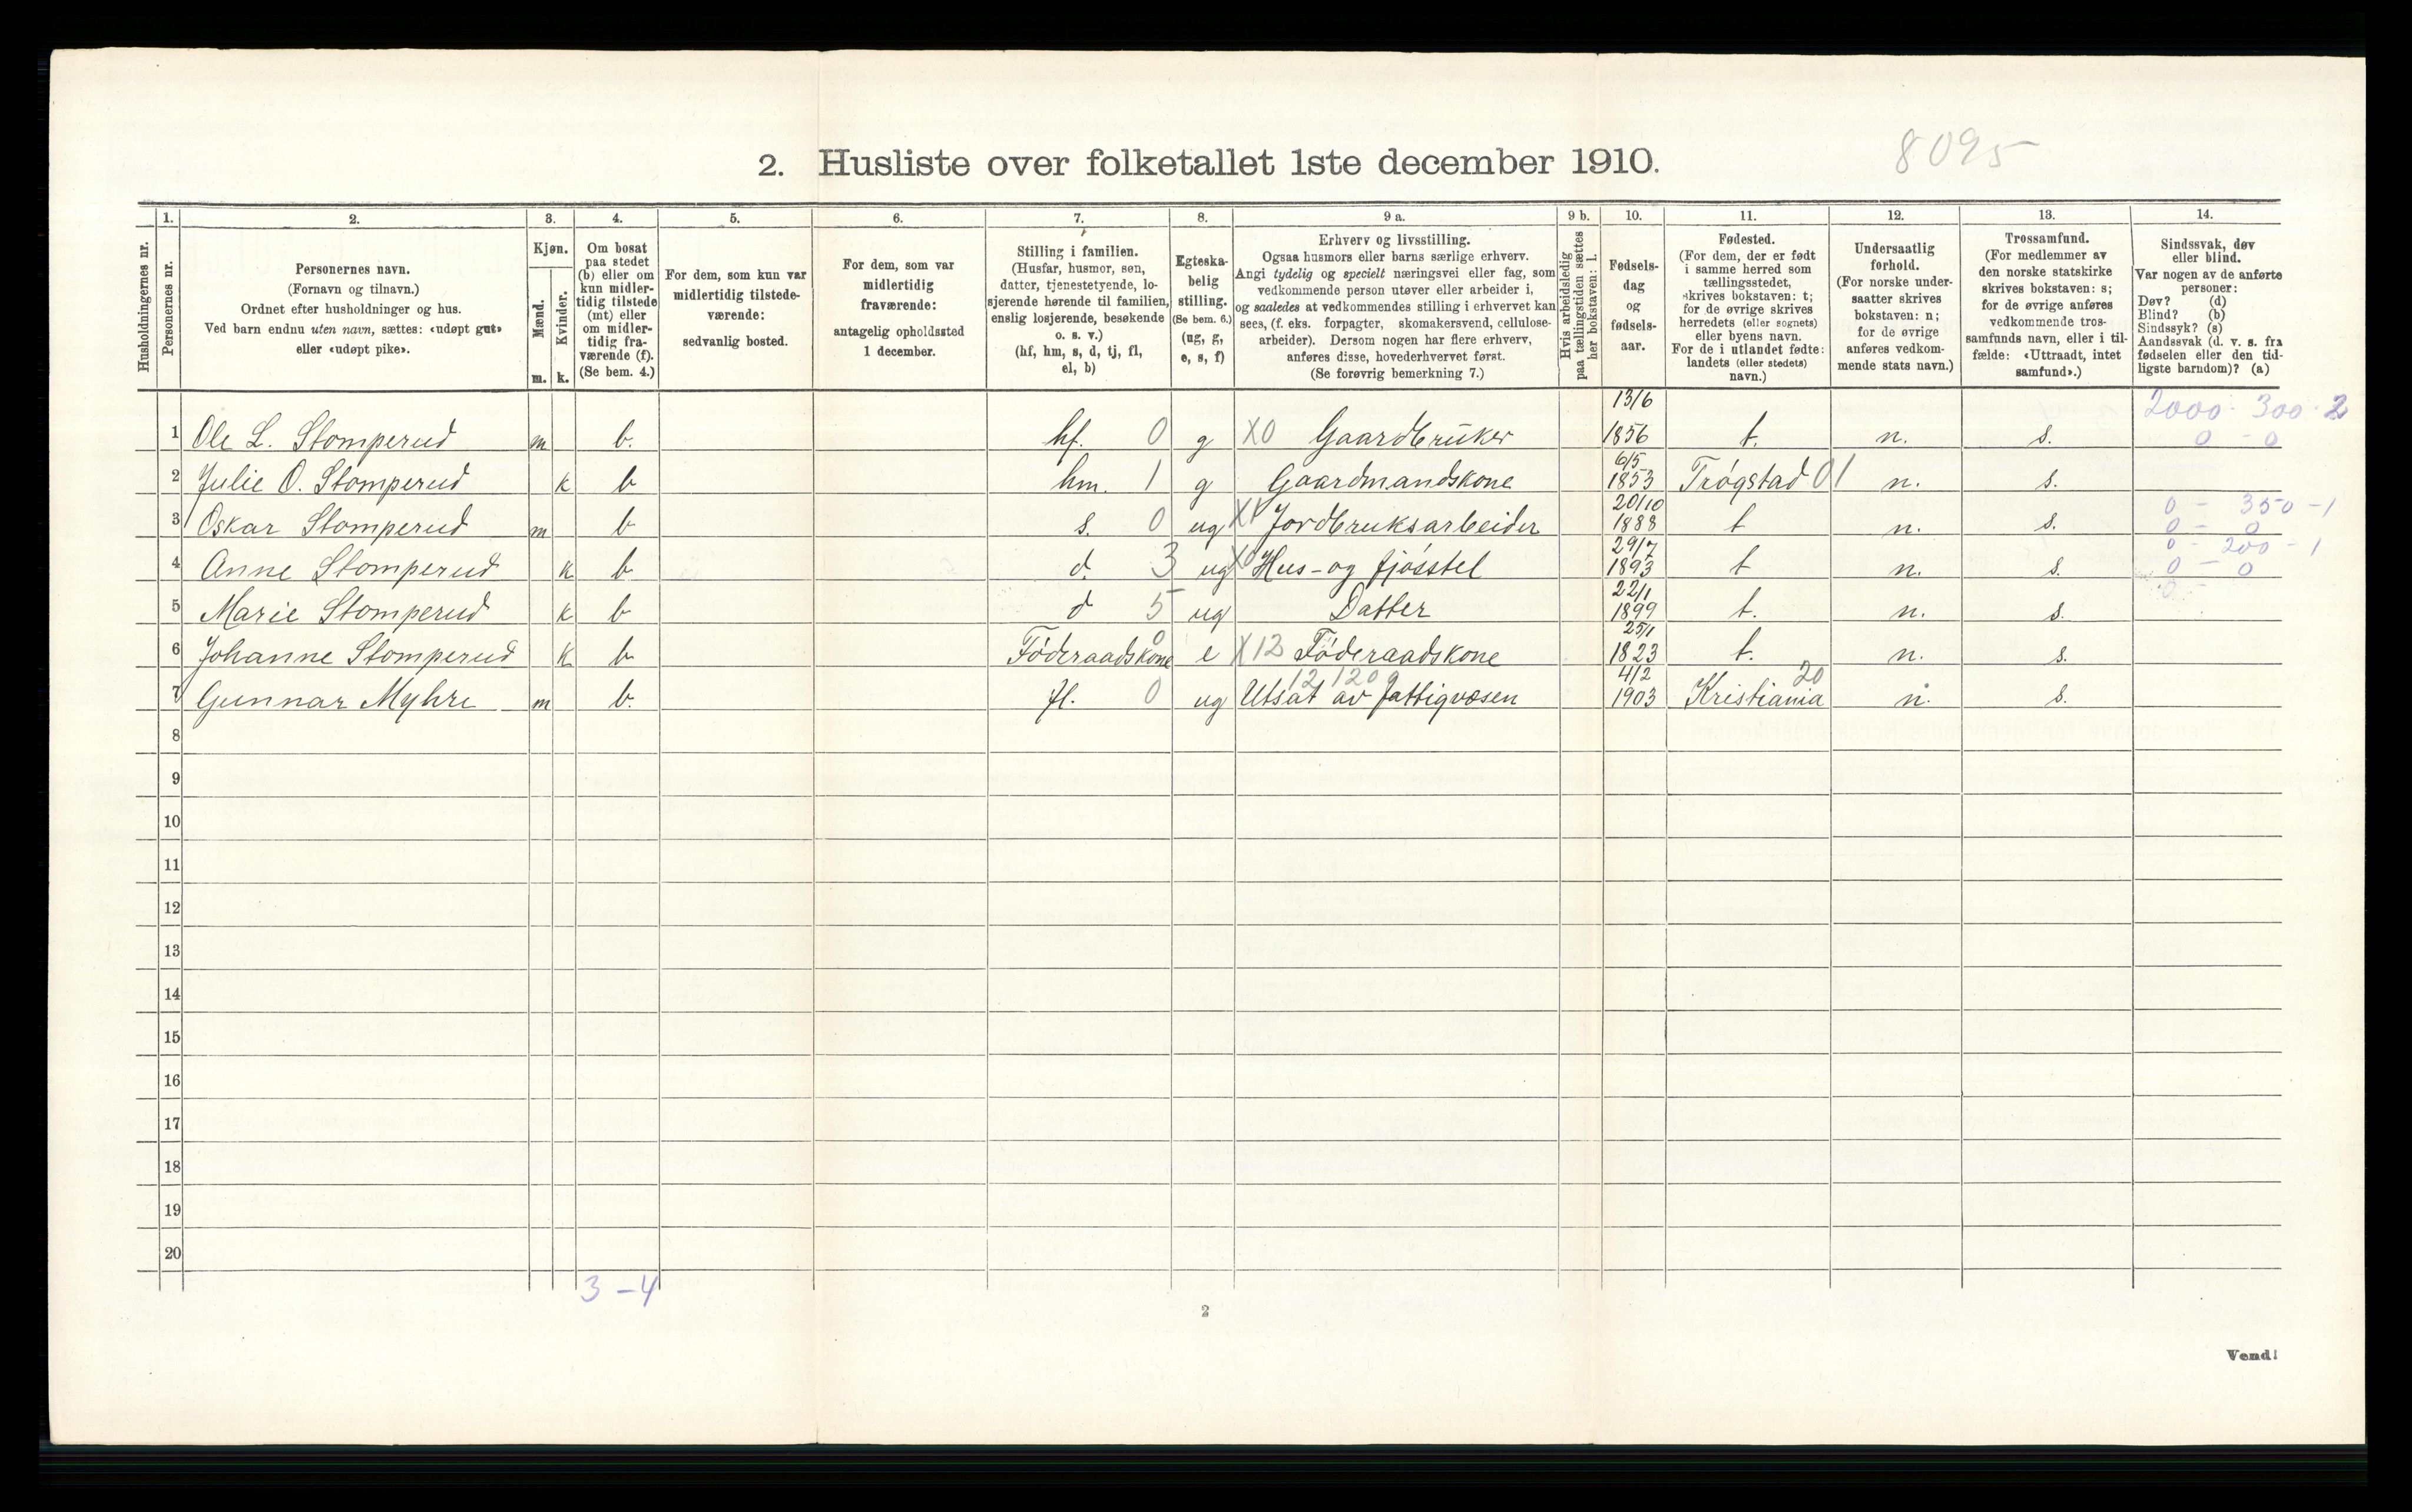 8095
2. Husliste over folketallet 1ste december 1910.
Husholdningernes nr.
1.
Personernes nr.
2.
Personernes navn.
(Fornavn og tilnavn.)
Ordnet efter husholdninger og hus.
Ved barn endnu uten navn, sættes: «udøpt gut»
eller «udøpt pike».
3.
Kjøn.
Mænd.
Kvinder.
m. k.
4.
Om bosat
paa stedet
(b) eller om
kun midler-
tidig tilstede
(mt) eller
om midler-
tidig fra-
værende (f).
(Se bem. 4.)
5.
For dem, som kun var
midlertidig tilstede-
værende:
sedvanlig bosted.
6.
For dem, som var
midlertidig
fraværende:
antagelig opholdssted
1 december.
7.
Stilling i familien.
(Husfar, husmor, søn,
datter, tjenestetyende, lo-
sjerende hørende til familien,
enslig losjerende, besøkende
o. s. v.)
(hf, hm, s, d, tj, fl,
el, b)
8.
Egteska-
belig
stilling.
(Se bem. 6.)
(ug, g,
e, s, f)
9 a.
Erhverv og livsstilling.
Ogsaa husmors eller barns særlige erhverv.
Angi tydelig og specielt næringsvei eller fag, som
vedkommende person utøver eller arbeider i,
og saaledes at vedkommendes stilling i erhvervet kan
sees, (f. eks. forpagter, skomakersvend, cellulose-
arbeider). Dersom nogen har flere erhverv,
anføres disse, hovederhvervet først.
(Se forøvrig bemerkning 7.)
9 b.
Hvis arbeidsledig
paa tællingstiden sættes
her bokstaven: l.
10.
Fødsels-
dag
og
fødsels-
aar.
11.
Fødested.
(For dem, der er født
i samme herred som
tællingsstedet,
skrives bokstaven: t;
for de øvrige skrives
herredets (eller sognets)
eller byens navn.
For de i utlandet fødte:
landets (eller stedets)
navn.)
12.
Undersaatlig
forhold.
(For norske under-
saatter skrives
bokstaven: n;
for de øvrige
anføres vedkom-
mende stats navn.)
13.
Trossamfund.
(For medlemmer av
den norske statskirke
skrives bokstaven: s;
for de øvrige anføres
vedkommende tros-
samfunds navn, eller i til-
fælde: «Uttraadt, intet
samfund».)
14.
Sindssvak, døv
eller blind.
Var nogen av de anførte
personer:
Døv? (d)
Blind? (b)
Sindssyk? (s)
Aandssvak (d. v. s. fra
fødselen eller den tid-
ligste barndom)? (a)
13/6 2000 - 300 - 2
1 Ole L. Stomperud m b. hf. 0 g X0 Gaardbruker 1856 t. n. s. 0 - 0
6/5
2 Julie O. Stomperud k b hm. 1 g Gaardmandskone 1853 Trøgstad 01 n. s.
20/10 0 - 350 - 1
3 Oskar Stomperud m b s. 0 ug X1 Jordbruksarbeider 1888 t n. s. 0 - 0
29/7 0 - 200 - 1
4 Anne Stomperud k b d. 3 ug X0 Hus- og fjøsstel 1893 t n. s. 0 - 0
22/1 0 -
5 Marie Stomperud k b d 5 ug Datter 1899 t. n. s.
25/1
6 Johanne Stomperud k b Föderaadskone 0 e X12 Föderaadskone 1823 t. n. s.
12 120 4/2 20
7 Gunnar Myhre m b. fl. 0 ug Utsat av fattigvæsen 1903 Kristiania n. s.
8
9
10
11
12
13
14
15
16
17
18
19
20
3 - 4
2
Vend!